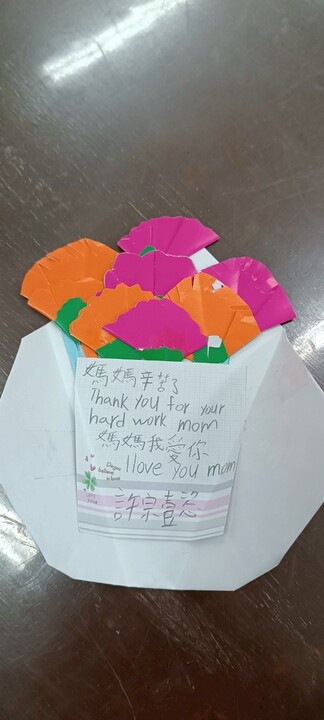 媽媽辛苦了
Thank you for your
hard work mom
媽媽我愛你
I love you mom
許宗壹